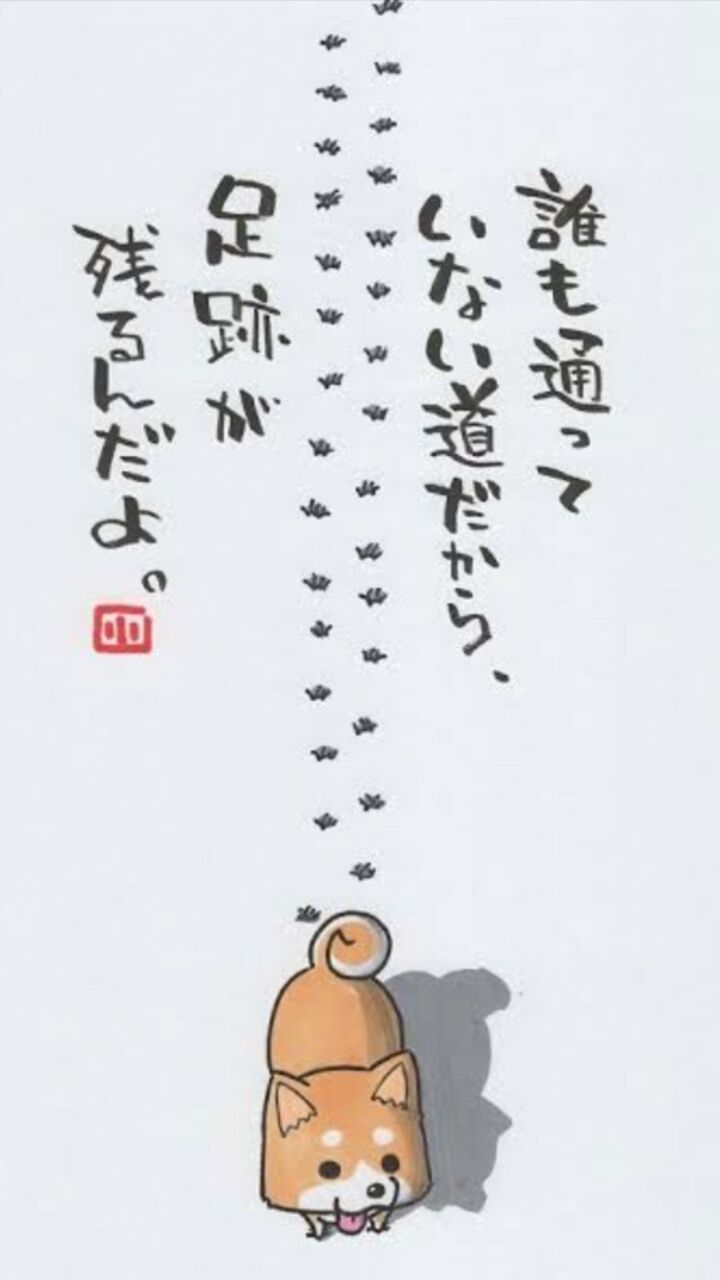 誰も通って
いない道だから、
足跡が
残るんだよ。